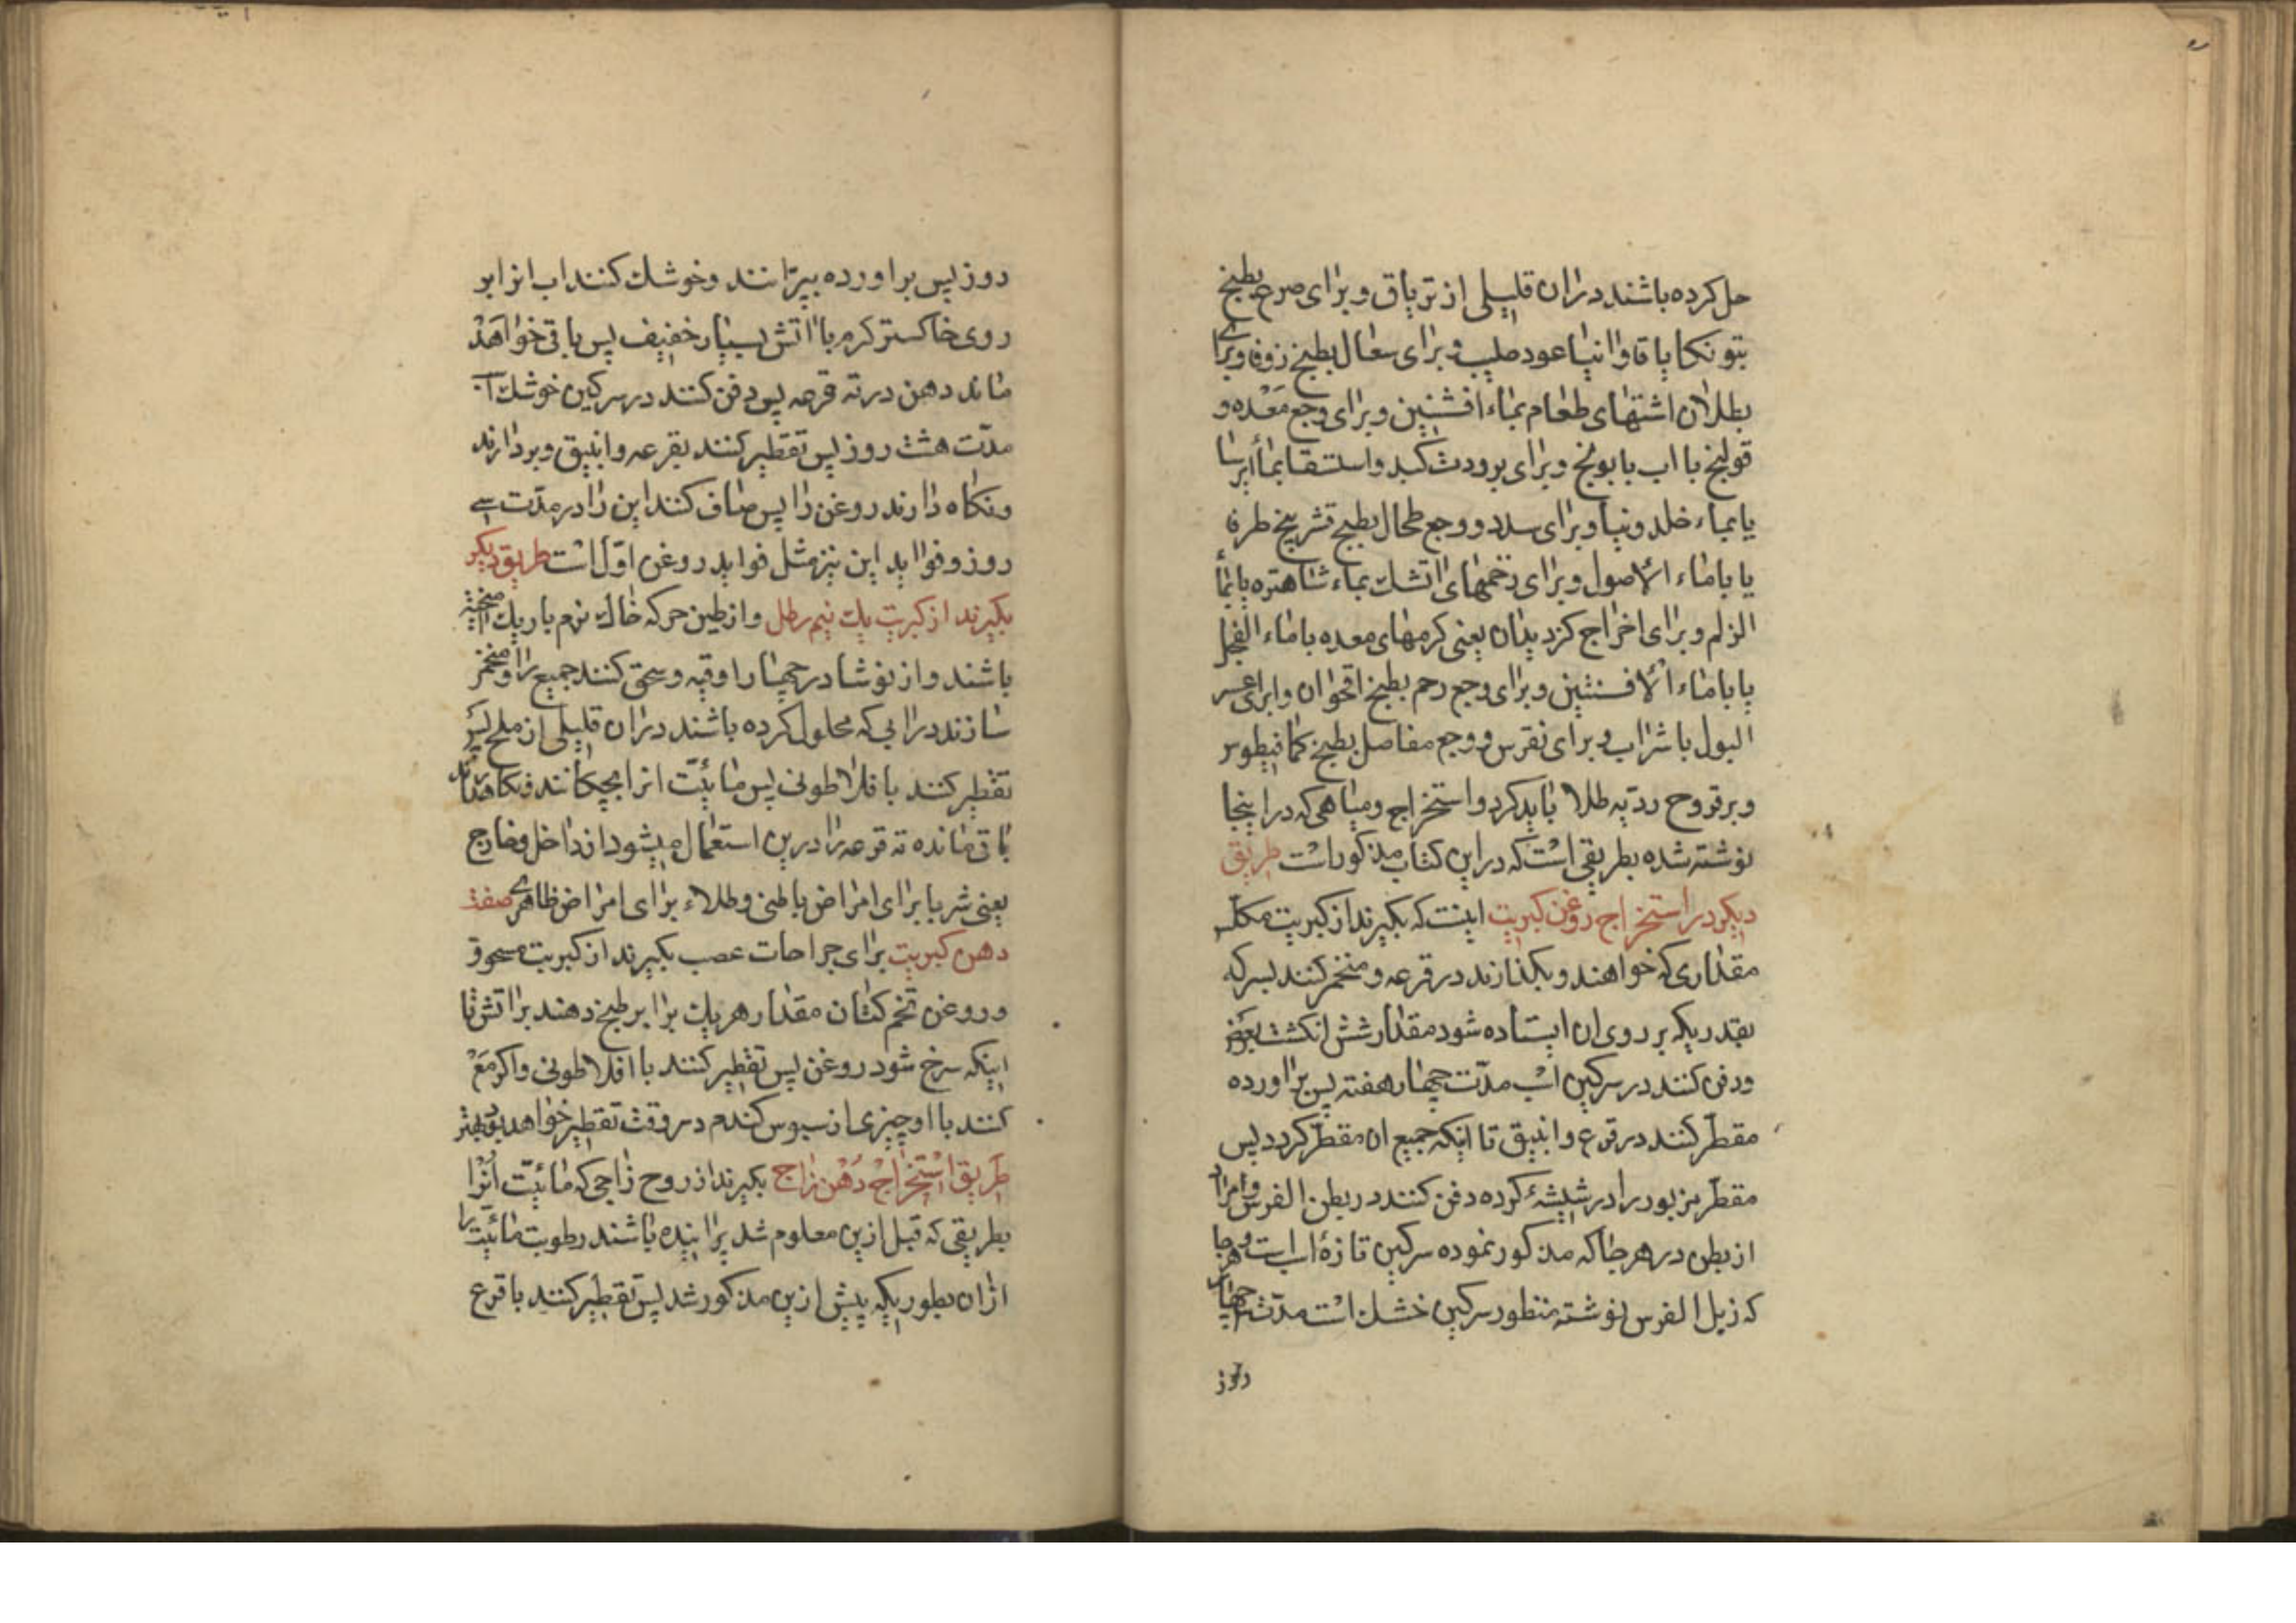 حل کرده باشند دران قلیلی از تریاق و برای صرع بطبیخ
بتونکا یا فاوانیا عود صلیب و برای سعال بطبیخ زوفا و برای
بطلان اشتهای طعام بماء افشنتین و برای وجع معده و
قولنج با اب بابونج و برای برودت کبد و استسقا بماء ایرسا
یا بماء خلدونیا و برای سدد و وجع طحال بطبیخ قشر بیخ طرفا
یا باماء الاصول و برای زخمهای اتشک بماء شاهتره یا بماء
الزلم و برای اخراج کزدیدان یعنی کرمهای معده باماء الفجل
یا باماء الافسنتین و برای وجع رحم بطبیخ اقحوان و ابرای عسر
البول با شراب و برای نقرس و وجع مفاصل بطبیخ کمافیطوس
و بر قروح ردیه طلا باید کرد و استخراج و میاهی که در اینجا
نوشته شده بطریقی است که در این کتاب مذکور است طریق
دیکر در استخراج روغن کبریت اینست که بکیرند از کبریت مکلس
مقداری که خواهند و بکذارند در قرعه و منخمر کنند بسرکه
بقدریکه بر روی ان ایستاده شود مقدار شش انکشت
و دفن کنند در سرکین اسب مدت چهار هفته پس براورده
مقطر کنند در قرع و انبیق تا اینکه جمیع ان مقطر کردد پس
مقطر مزبور را در شیشهٔ کرده دفن کنند در بطن الفرس و مراد
از بطن در هر جا که مذکور نموده سرکین تازهٔ اسب است و هر جا
که زبل الفرس نوشته منظور سرکین خشک است مدت چهار
روز
روز پس براورده بپرانند و خوشک کنند اب انرا بر
روی خاکستر کرم با اتش بسیار خفیف پس باقی خواهد
ماند دهن در ته قرعه پس دفن کنند در سرکین خوشک
مدت هشت روز پس تقطیر کنند بقرعه و انبیق و بردارند
و نکاه دارند روغن را پس صاف کنند این را در مدت سی
روز و فواید این نیز مثل فواید روغن اول است طریق دیکر
بکیرند از کبریت یک نیم رطل و از طین حر که خاک نرم باریک
باشند و از نوشادر چهار اوقیه و سحق کنند جمیع را و منخمر
سازند در ابی که محلول کرده باشند دران قلیلی از ملح پس
تقطیر کنند با فلاطونی پس مائیت انرا بچکانند و نکاه دارند
باقی مانده ته قرعه را درین استعمال میشود از داخل و خارج
یعنی شربا برای امراض باطنی و طلاء برای امراض ظاهری صفت
دهن کبریت برای جراحات عصب بکیرند از کبریت مسحوق
و روغن تخم کتان مقدار هر یک برابر طبخ دهند بر اتش تا
اینکه سرخ شود روغن پس تقطیر کنند با افلاطونی و اکر مع
کنند با او چیزی از سبوس کندم در وقت تقطیر خواهد بود بهتر
طریق استخراج دهن زاج بکیرند از روح زاجی که مائیت انرا
بطریقی که قبل ازین معلوم شد پرانیده باشند رطوبت مائیت را
ازان بطوریکه پیش ازین مذکور شد پس تقطیر کنند با قرع